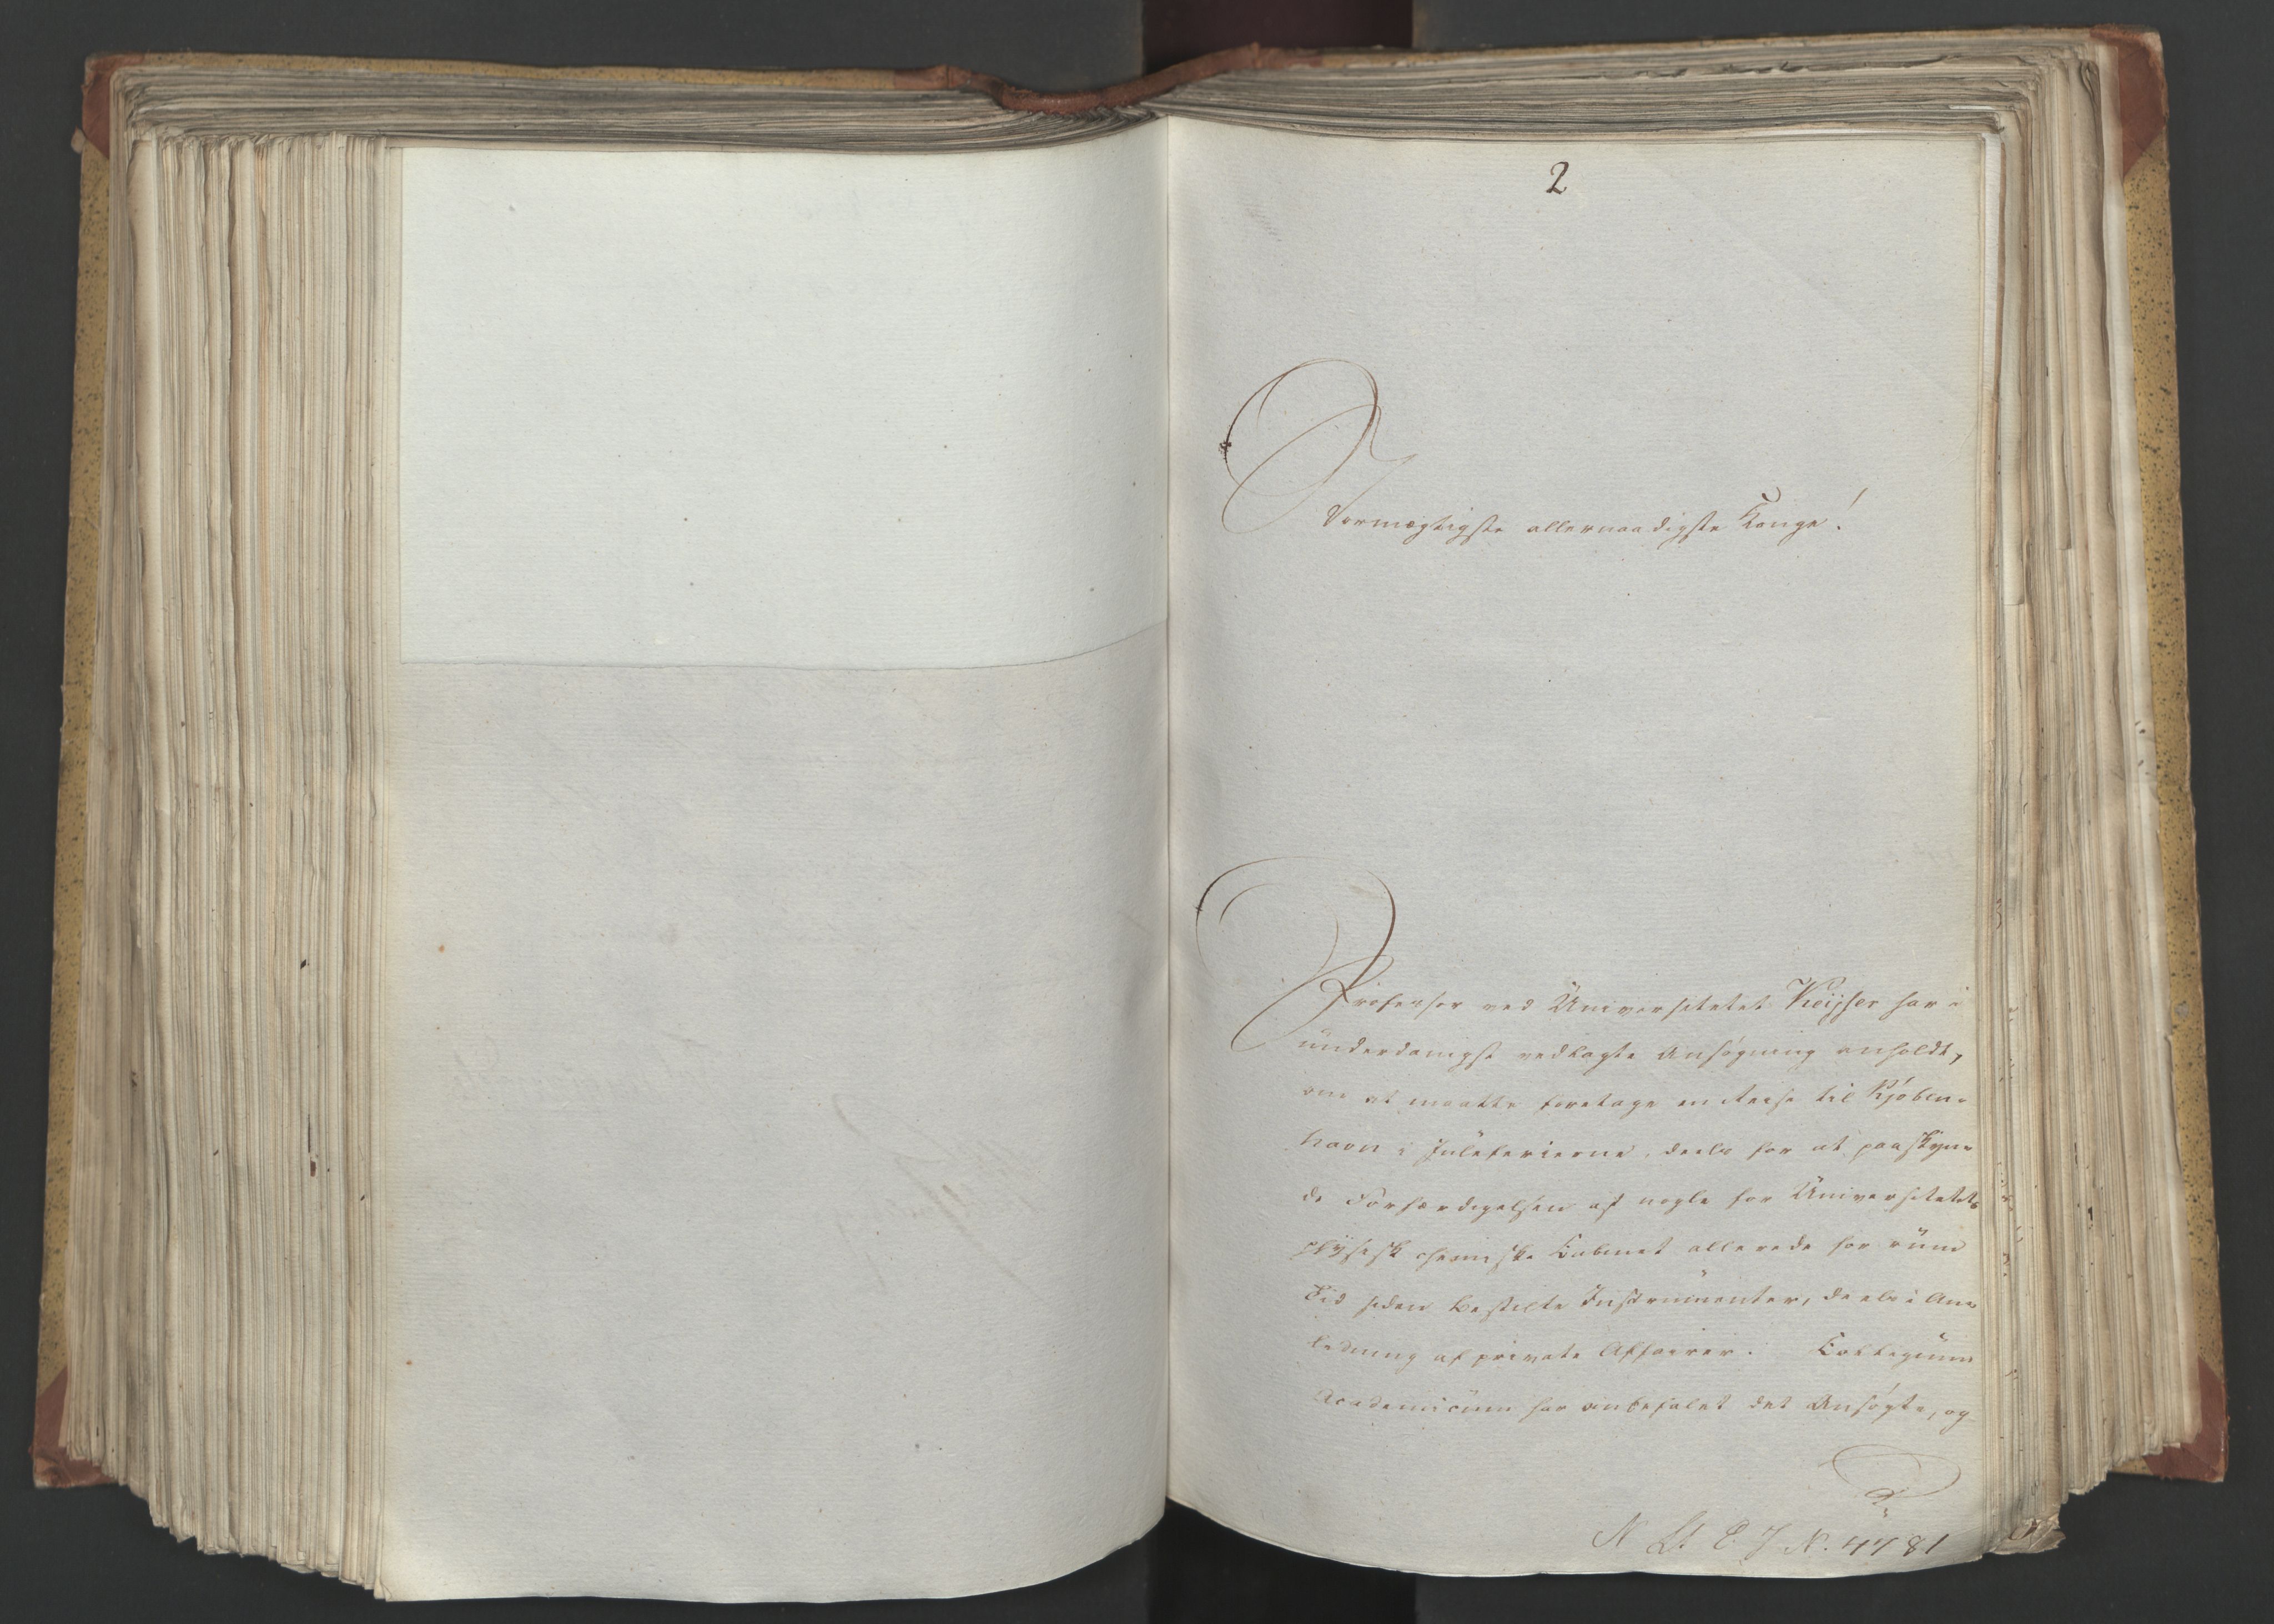 2
Stormægtigste allernaadigste Konge!
Professor ved Universitetet Keijser har i
underdanigst vedlagte Ansøgning anholdt,
om at maatte foretage en Reise til Kjøben-
havn i Juleferierne, deels for at paaskyn-
de Forfærdigelsen af nogle for Universitetets
physisk chemiske Cabinet allerede for rum
Tid siden bestilte Instrumenter, deels i An-
ledning af private Affairer. Collegium
Academicum har anbefalet det Ansøgte, og
N. 4781